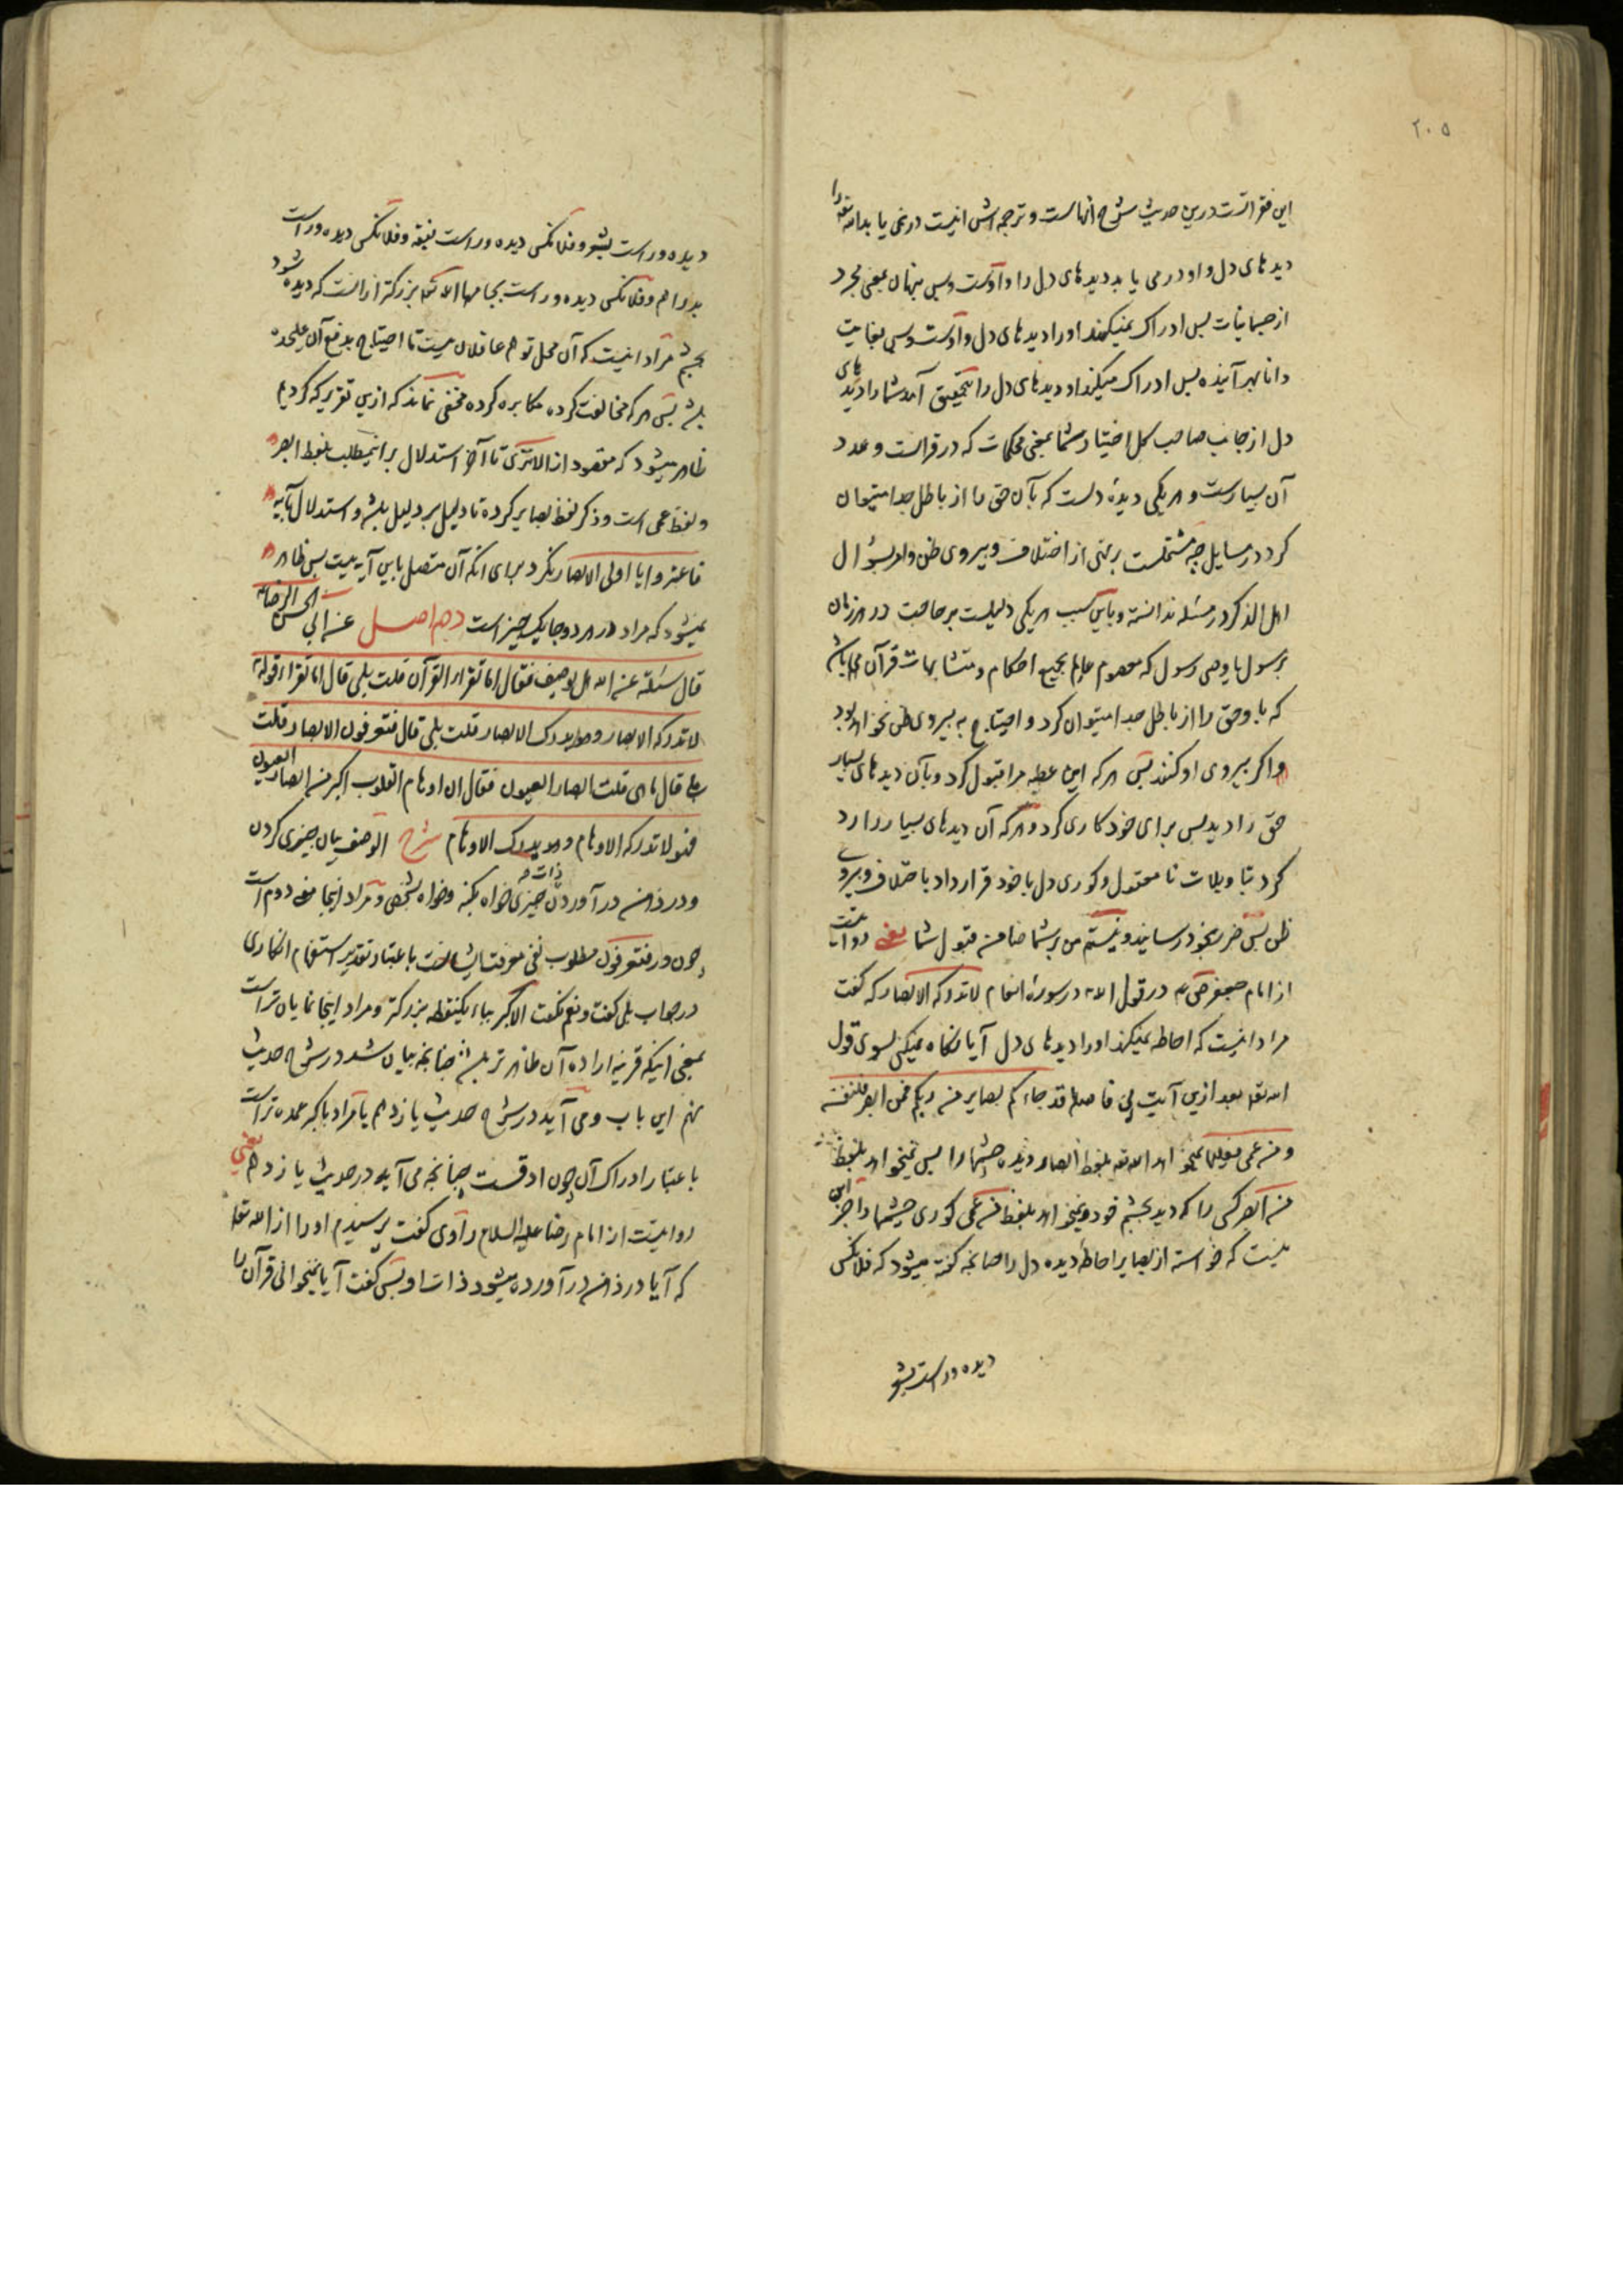 ۲۰۵
این فقراتست درین حدیث شرح آنهاست و ترجمه‌اش اینست در نمی یابد الله تعه را
دیدهای دل و او در می یابد دیدهای دل را و اوست و بس پنهان بمعنی مجرد
از جسمانیات پس ادراک نمیکنند او را دیدهای دل و اوست و بس بغایت
دانا بهر آینده پس ادراک میکند او دیدهای دل را بتحقیق آمد شما را دیدهای
دل از جانب صاحب کل اختیار شما بمعنی محکمات که در قرانست و عدد
آن بسیارست و هر یکی دیدهٔ دلست که بآن حق را از باطل جدا میتوان
کرد در مسایل چه مشتملست بر نهی از اختلاف و پیروی ظن و امر بسؤال
اهل الذکر در مسئله ندانسته و باین سبب هر یکی دلیلست بر حاجت در هر زمان
برسول یا وصی رسول که معصوم عالم بجمیع احکام و متشابهات قرآن
که باو حق را از باطل جدا میتوان کرد و احتیاج به پیروی ظن نخواهد بود
اگر پیروی او کنند پس هر که این عطیه مرا قبول کرد و بآن دیدهای بسیار
حق را دید پس برای خود کاری کرد و هر که آن دیدهای بسیار را رد
کرد بتاویلات نا معقول و کوری دل با خود قرار داد باختلاف و پیروی
ظن پس ضرر بخود رسانید و نیستم من بر شما ضامن قبول شما یعنی روایتست
از امام جعفر در قول الله در سورهٔ انعام لا تدرکه الابصار که گفت
مراد اینست که احاطه نمیکند او را دیدهای دل آیا نگاه نمیکنی بسوی قول
الله تعه بعد ازین آیت بی فاصله قد جاءکم بصایر من ربکم فمن ابصر فلنفسه
و من عمی فعلیها نمیخواهد الله تعه بلفظ ابصار چشمها را پس نمیخواهد بلفظ
من ابصر کسی را که دید بچشم خود و نمیخواهد بلفظ من عمی کوری چشمها را جز این
نیست که خواسته از بصایر احاطهٔ دیده دل را چنانچه گفته میشود که فلانکس
دیده ور است بشعر
دیده ور است بشعر و فلانکس دیده ور است بفقه و فلانکس دیده ور است
بدراهم و فلانکس دیده ور است بجامها الله تعه بزرگتر از آنست که دیده شود
بچشم مراد اینست که آن محل توهم عاقلان نیست تا احتیاج بدفع آن علیحده
باشد پس هر که مخالفت کرده مکابره کرده مخفی نماند که ازین تقریر که کردیم
ظاهر میشود که مقصود از الا تری تا آخر استدلال بر اینمطلب بلفظ ابصر
و لفظ عمی است و ذکر لفظ بصایر کرده تا دلیل بر دلیل باشد و استدلال بآیه
فاعتبروا یا اولی الابصار نکرد برای انکه آن متصل باین آیه نیست پس ظاهر
نمیشود که مراد در هر دو جا یک چیز است دهم اصل عن ابی الحسن الرضا
قال سئلته عن الله هل یوصف فقال اما تقرا القرآن قلت بلی قال اما تقرا قوله
لا تدرکه الابصار و هو یدرک الابصار قلت بلی قال فتعرفون الابصار قلت
بلی قال ما هی قلت ابصار العیون فقال ان اوهام القلوب اکبر من ابصار العیون
فهو لا تدرکه الاوهام و هو یدرک الاوهام شرح الوصف بیان چیزی کردن
و در ذهن در آوردن ذات چیزی خواه بکنه و خواه بشخص و مراد اینجا معنی دوم است
چون در فتعرفون مطلوب نفی معرفت ایشانست باعتبار تقدیر استفهام انکاری
در جواب بلی گفت و نعم نگفت الاکبر بباء یکنقطه بزرگتر و مراد اینجا نمایان تر است
بمعنی اینکه قرینه اراده آن ظاهر تر باشد چنانچه بیان شد در شرح حدیث
نهم این باب و می آید در شرح حدیث یازدهم یا مراد باکبر عمده تر است
باعتبار ادراک آن چون ادقست چنانچه می آید در حدیث یازدهم یعنی
روایتست از امام رضا علیه السلام راوی گفت پرسیدم او را از الله تعه
که آیا در ذهن در آورده میشود ذات او پس گفت آیا نمیخوانی قرآن را